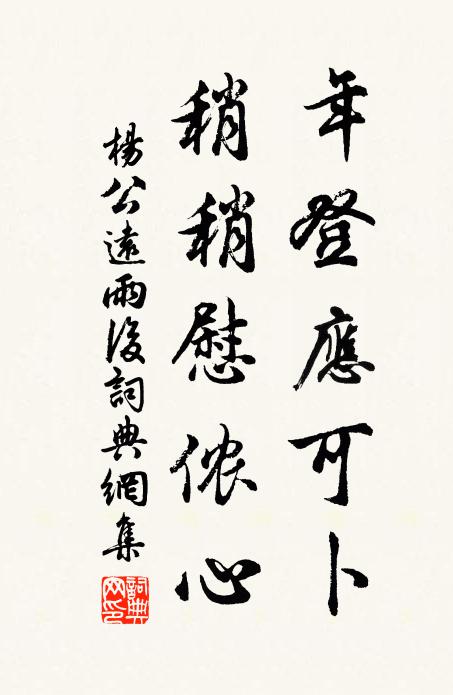 年登應可卜
稍稍慰侬心
楊公遠雨後詞典網集
詞典
网印